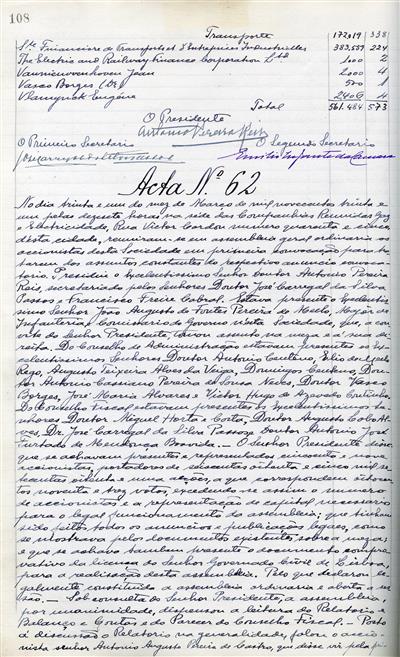 108
Transporte 172019 338
Sté Financière de Transports et d'Entreprises Industrielles 383,559 224
The Electric and Railway Finance Corporation Ltd 1000 2
Vanwinvenhoven Jean 2000 4
Vasco Borges (Dr) 500 1
Vlaminynk Eugène 2406 4
Total 561.484 573
O Presidente
Antonio Pereira Reis
O Primeiro Secretario O Segundo Secretario
Acta Nº 62
No dia trinta e um do mez de Março de mil novecentos trinta e
um pelas dezasete horas na séde das Companhias Reunidas Gaz
e Eletricidade, Rua Victor Cordon numero quarenta e cinco
desta cidade, reuniram-se em assembleia geral ordinaria os
accionistas desta Sociedade em primeira convocação para tra-
tarem dos assuntos constantes do respectivo anuncio convoca-
torio. Presidiu o Excelentissimo Senhor Doutor Antonio Pereira
Reis, secretariado pelos Senhores Doutor José Carregal da Silva
Passos e Francisco Freire Cabral. Estava presente o Excelentis-
simo Senhor João Augusto de Fontes Pereira de Mello, Major de
Infanteria e Comissario do Governo nesta Sociedade, que, a con-
vite do Senhor Presidente, tomou assento na mesa á sua di-
reita. Do Conselho de Administração estavam presentes os Ex-
celentissimos Senhores Doutor Antonio Centeno, Elio do
Rego, Augusto Teixeira Alves da Veiga, Domingos Centeno, Dou-
tor Antonio Cassiano Pereira de Sousa Neves, Doutor Vasco
Borges, José Maria Alvares e Victor Hugo de Azevedo Coutinho.
Do Conselho Fiscal estavam presentes os Excelentissimos Se-
nhores Doutor Miguel Horta e Costa, Doutor Augusto Lobo Al-
ves, Dr. José Carregal da Silva Passos e Doutor Antonio José
Furtado de Mendonça Boavida. — O Senhor Presidente disse
que se achavam presentes e representados cincoenta e nove
accionistas, portadores de sessenta oitenta e cinco mil se-
tecentas oitenta e uma acções, a que correspondem oitocen-
tos noventa e tres votos, excedendo-se assim o numero
de accionistas e a representação de capital necessarios
para o legal funcionamento da assembleia; que tinham
sido feitos todos os anuncios e publicações legaes, como
se mostrava pelos documentos existentes sobre a mesa;
e que se achava tambem presente o documento compro-
vativo da licença do Senhor Governador Civil de Lisboa,
para a realisação desta assembleia. Pelo que declarou le-
galmente constituida a assembleia ordinaria e aberta a ses-
são. — Sob consulta do Senhor Presidente, a assembleia,
por unanimidade, dispensou a leitura do Relatorio e
Balanço e Contas e do Parecer do Conselho Fiscal. — Posto
á discussão o Relatorio na generalidade, falou o accio-
nista senhor Antonio Augusto Pereira de Castro, que disse vir pela pri-